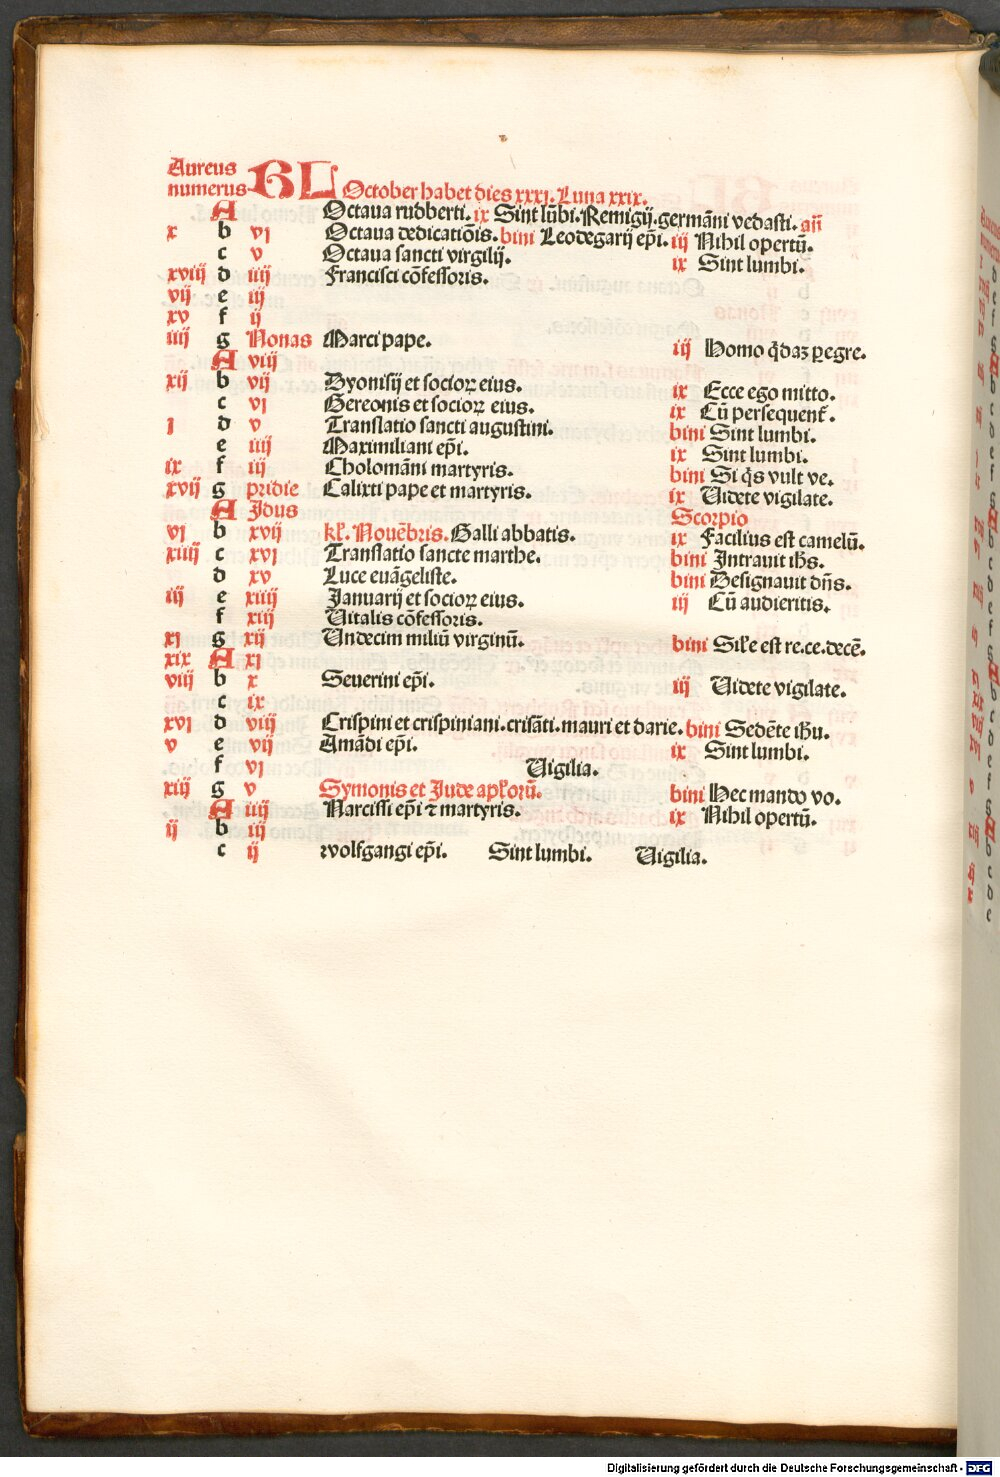 Aureus
numerus KL October habet dies xxxj. Luna xxix.
A Octaua rudberti. ix Sint lūbi. Remigij. germāni vedasti. aīī
x b vj Octaua dedicatiōis. bini Leodegarij ep̄i. iij Nihil opertū.
c v Octaua sancti virgilij. ix Sint lumbi.
xviij d iiij Francisci cōfessoris.
vij e iij
xv f ij
iiij g Nonas Marci pape. iij Homo q̄daꝫ ꝑegre.
A viij
xij b vij Dyonisij et socioꝝ eius. ix Ecce ego mitto.
c vj Gereonis et socioꝝ eius. ix Cū persequent̄.
j d v Translatio sancti augustini. bini Sint lumbi.
e iiij Maximiliani ep̄i. ix Sint lumbi.
ix f iij Cholomāni martyris. bini Si q̄s vult ve.
xvij g pridie Calixti pape et martyris. ix Uidete vigilate.
A Idus Scorpio
vj b xvij kł. Nouēbris. Galli abbatis. ix Facilius est camelū.
xiiij c xvj Translatio sancte marthe. bini Intrauit ih̄s.
d xv Luce euāgeliste. bini Designauit dn̄s.
iij e xiiij Januarij et socioꝝ eius. iij Cū audieritis.
f xiij Uitalis cōfessoris.
xj g xij Undecim miliū virginū. bini Siłe est re.ce.decē.
xix A xj
viij b x Seuerini ep̄i. iij Uidete vigilate.
c ix
xvj d viij Crispini et crispiniani. crisāti. mauri et darie. bini Sedēte ih̄u.
v e vij Amādi ep̄i. ix Sint lumbi.
f vj Uigilia.
xiij g v Symonis et Jude apłorū. bini Hec mando vo.
A iiij Narcissi ep̄i ⁊ martyris. ix Nihil opertū.
ij b iij
c ij wolfgangi ep̄i. Sint lumbi. Uigilia.
Digitalisierung gefördert durch die Deutsche Forschungsgemeinschaft - DFG